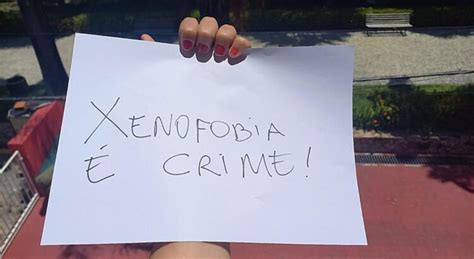 XENOFOBIA
É CRIME!